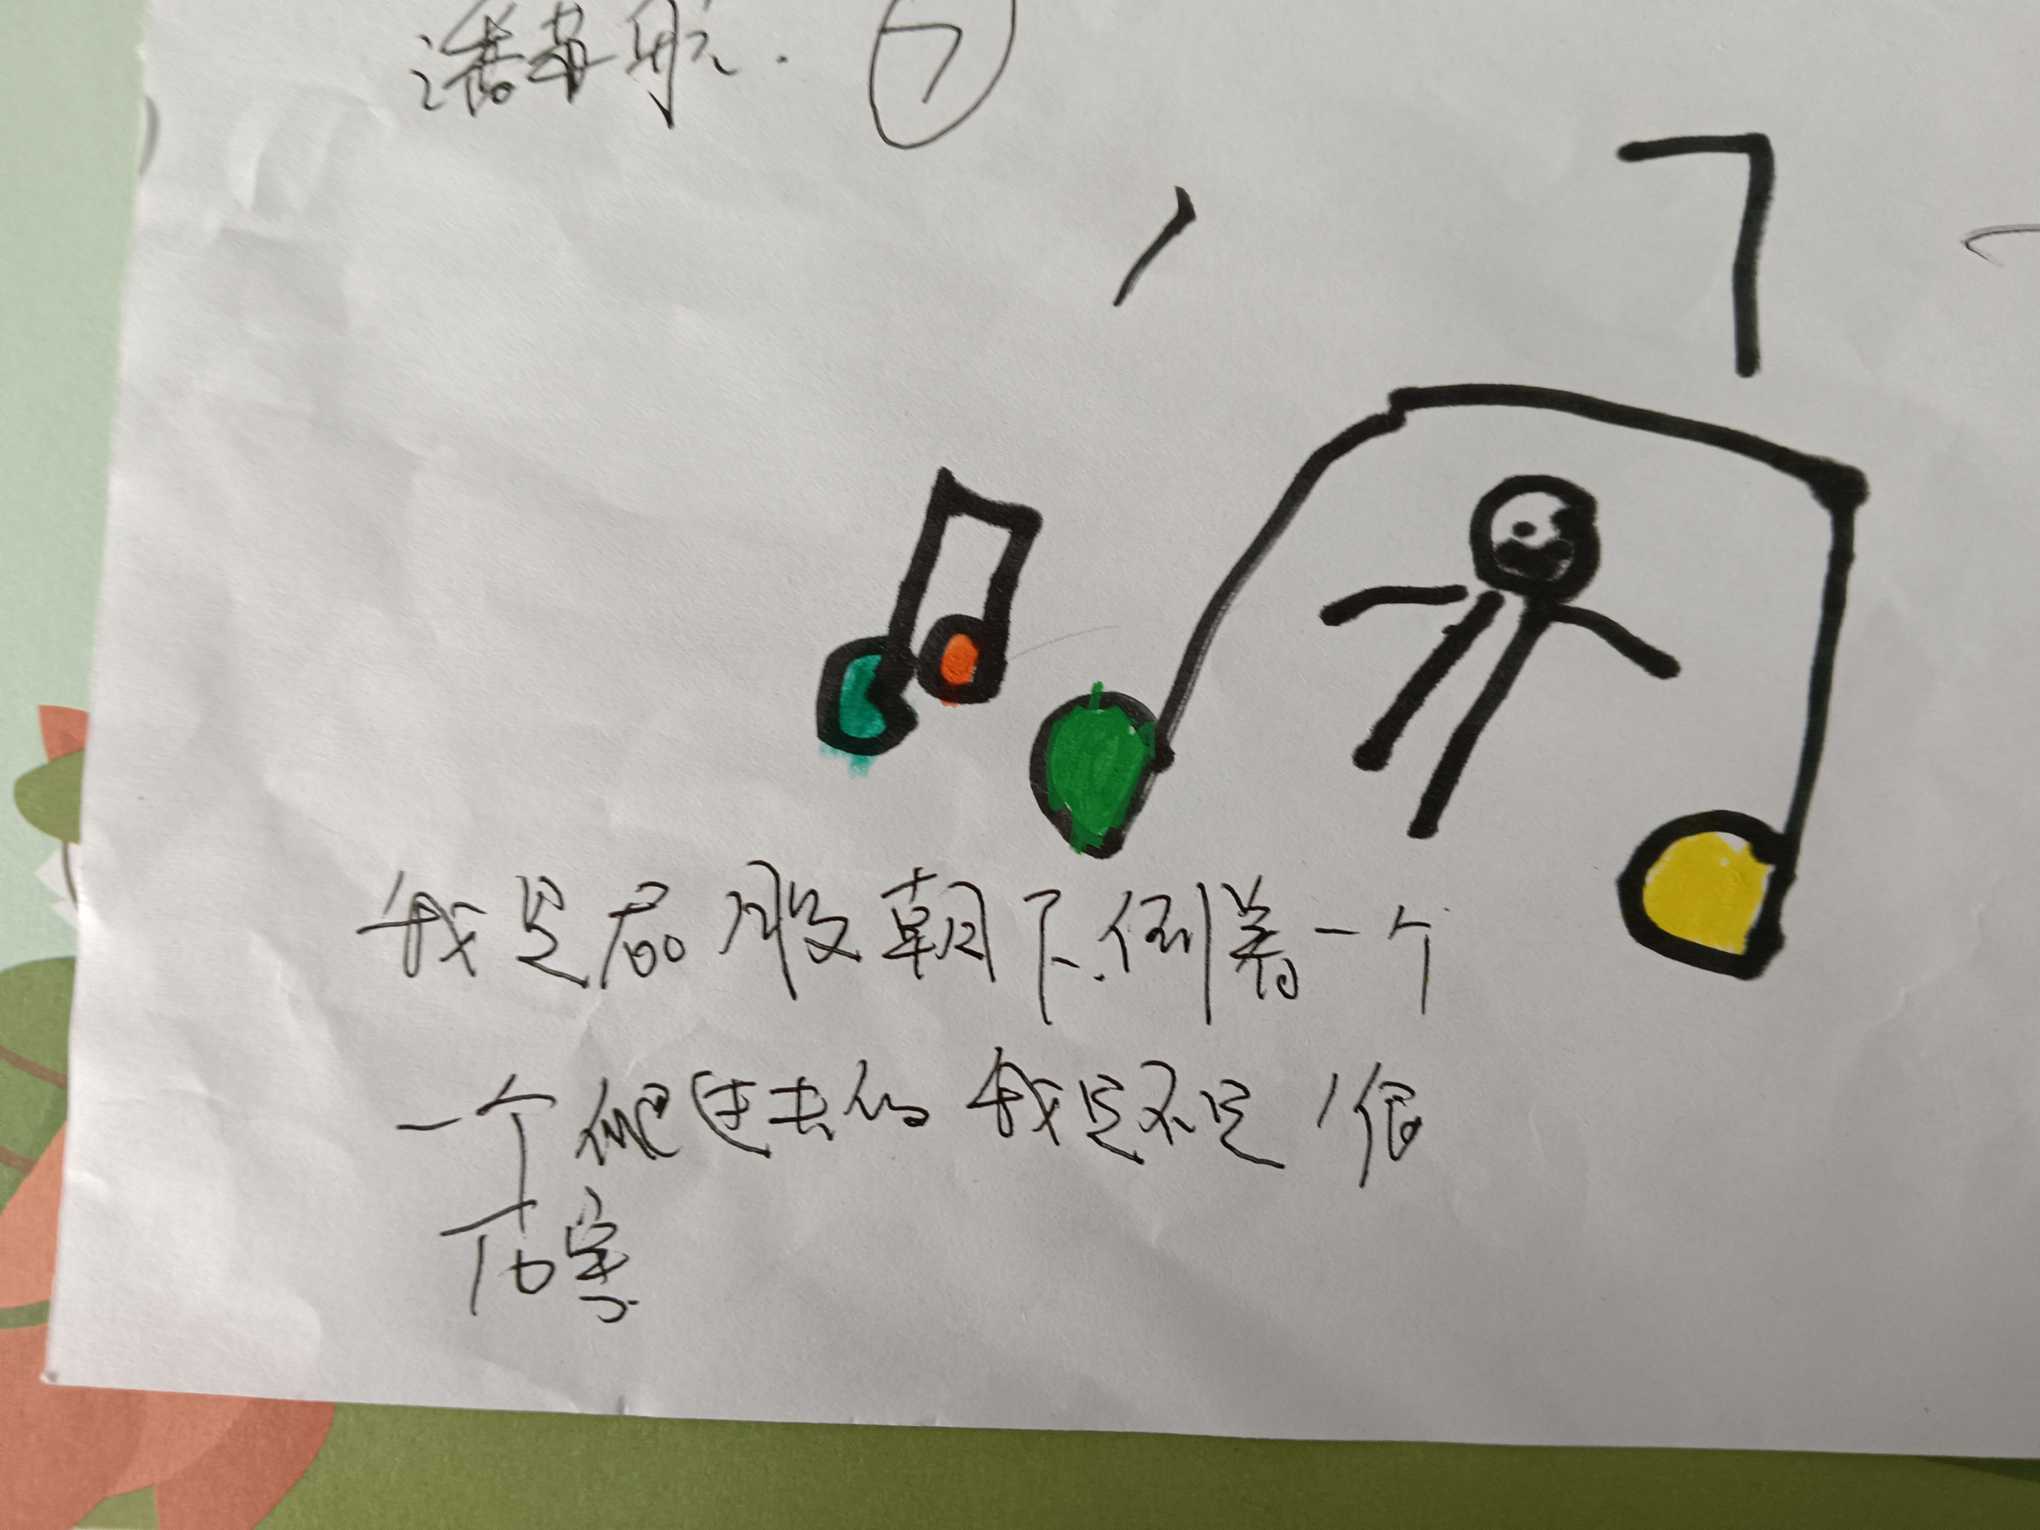 潘苏航. ⑦
7
我是屁股朝下.倒着一个
一个爬过去的 我是不是很
厉害.